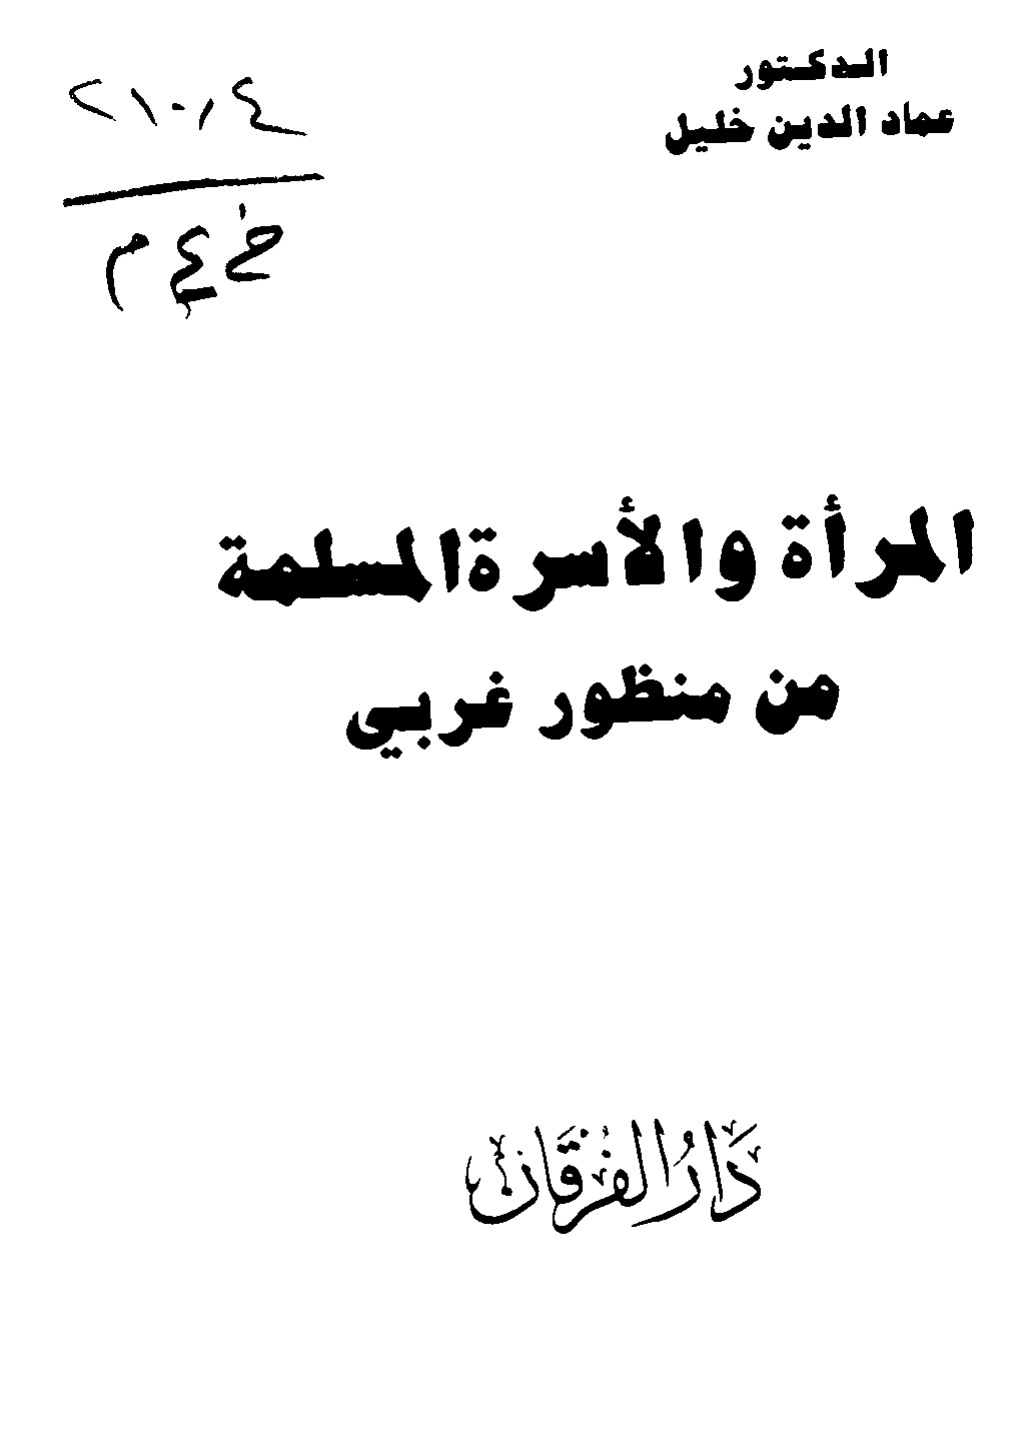 الدكتور
عماد الدين خليل
٢١٠,٤
خ ع م
المرأة والأسرة المسلمة
من منظور غربي
دَارُ الفُرقَان